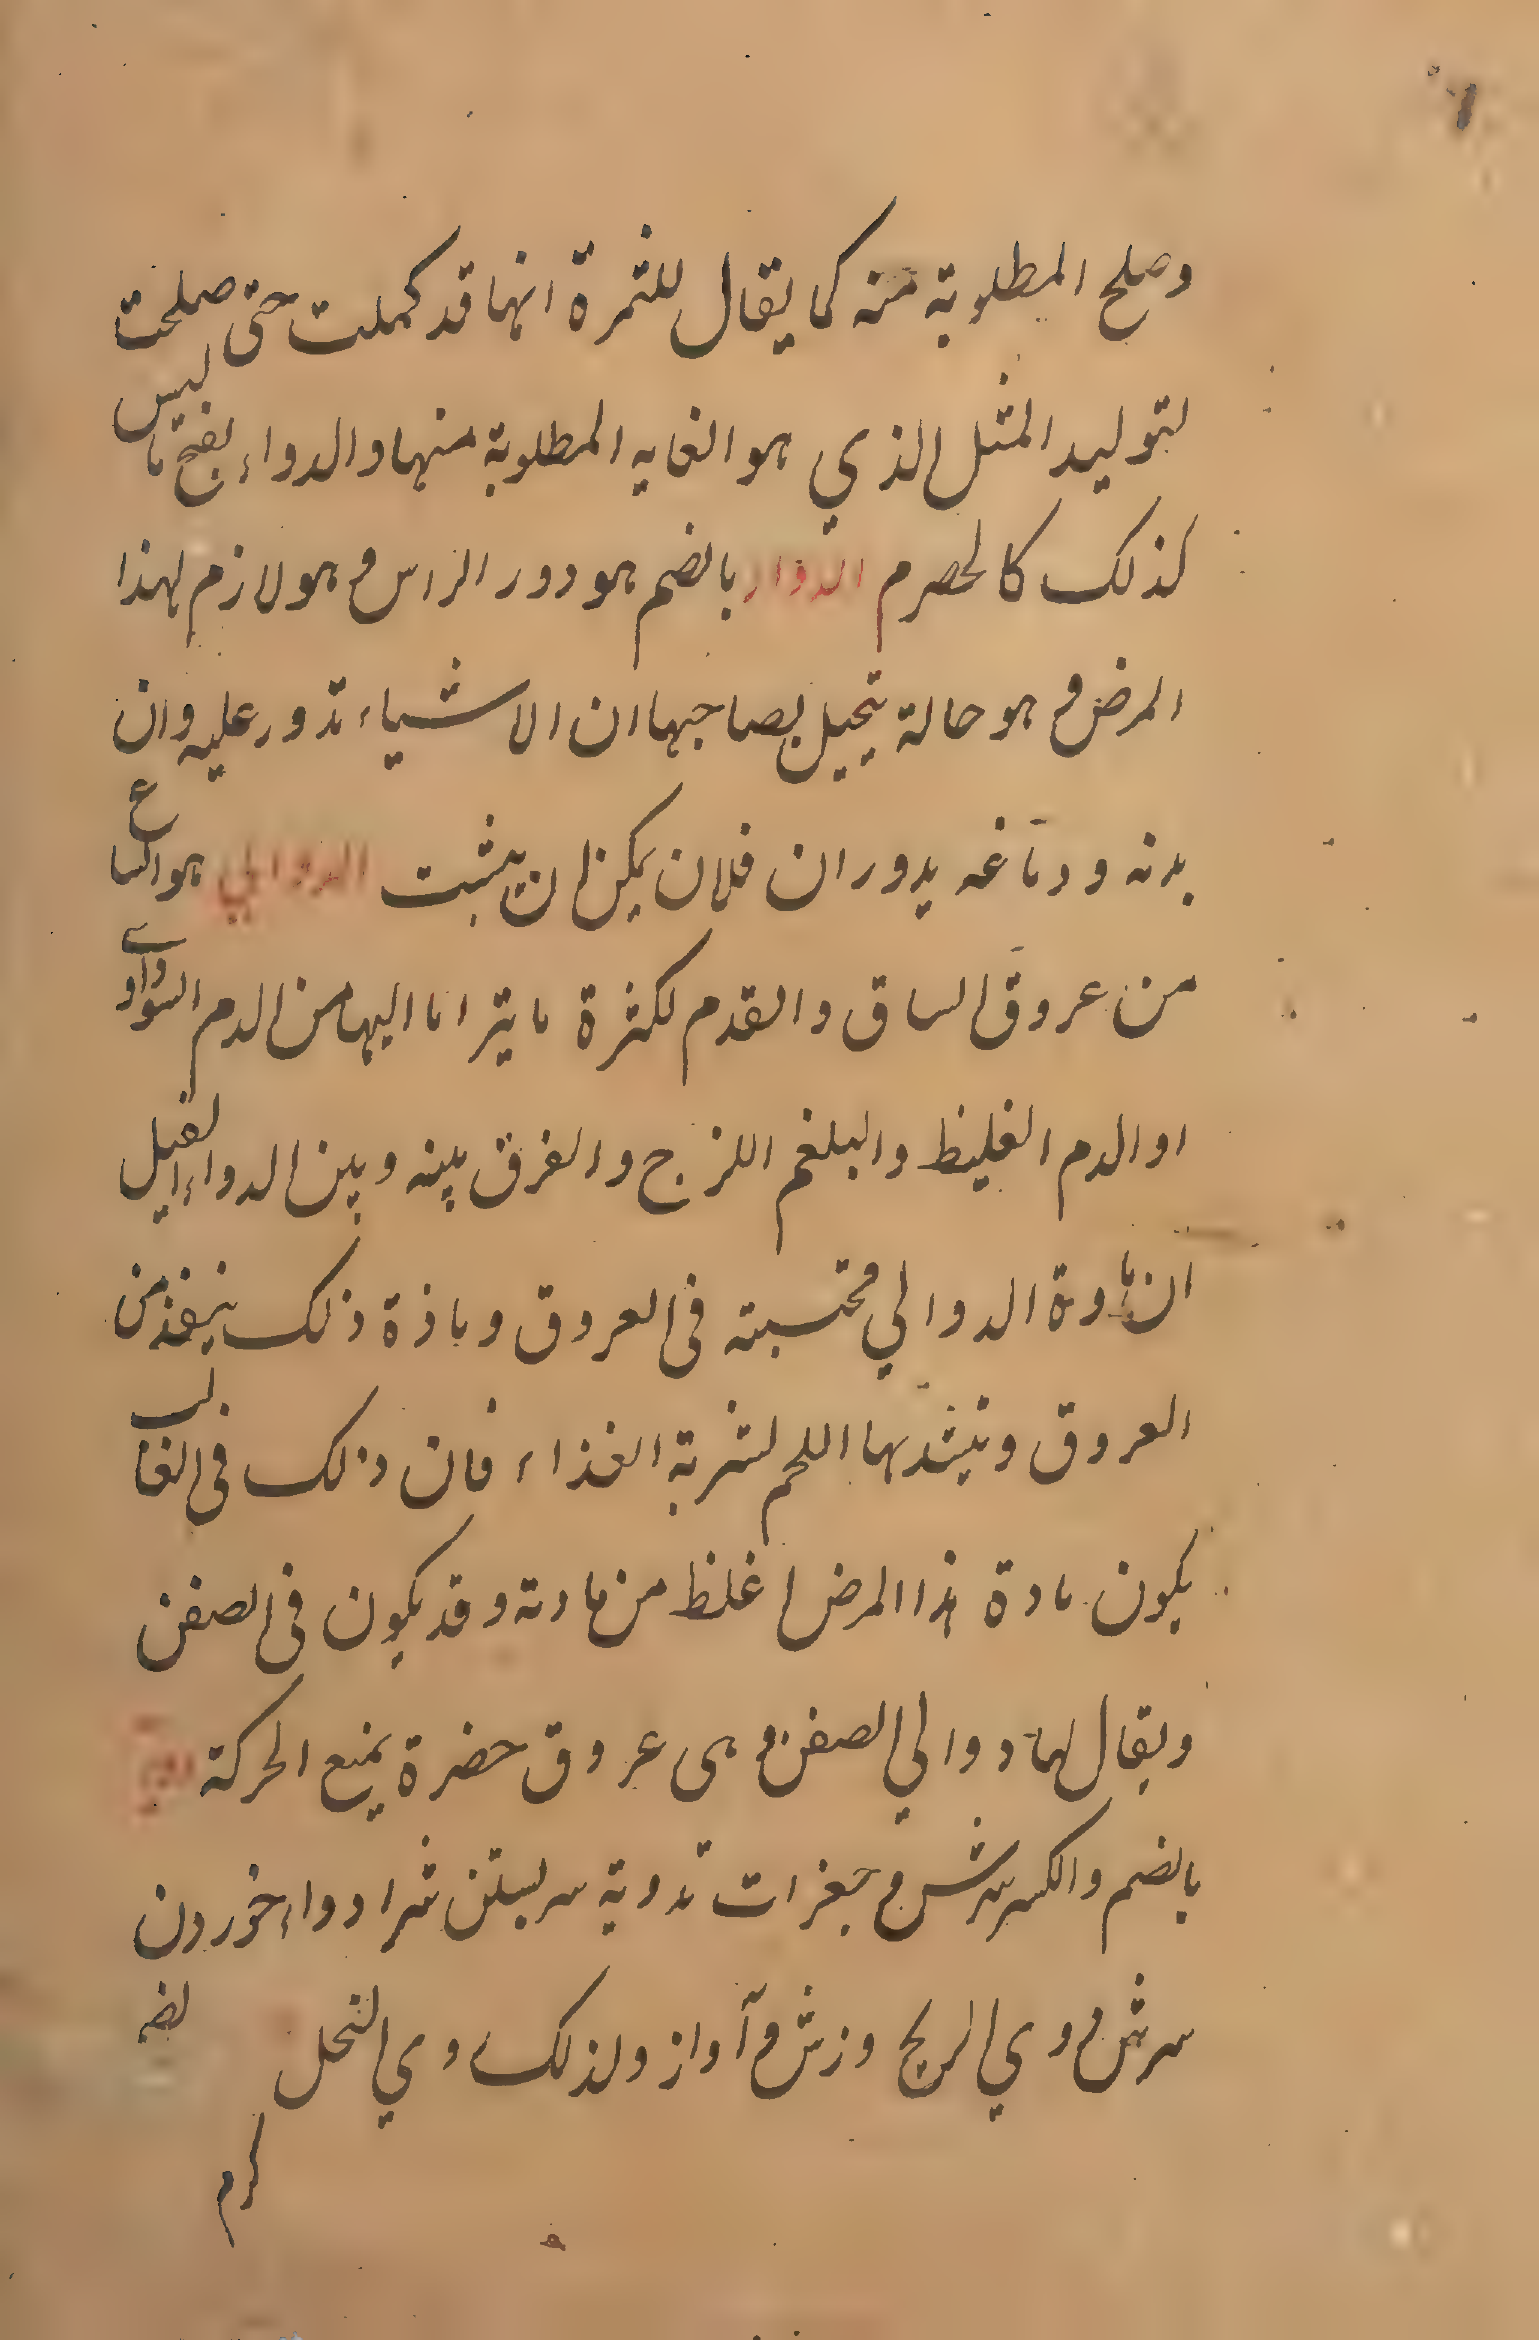 وصلح المطلوبة منه كما يقال للثمرة انها قد كملت حتى صلحت
لتوليد المثل الذي هو الغايه المطلوبة منها والدواء بفتح ما ليس
كذلك كالحصرم الدوار بالضم هو دور الراس و هو لازم لهذا
المرض و هو حالة يتخيل بصاحبها ان الاشياء تدور عليه وان
بدنه ودماغه يدوران فلان يمكن ان يثبت الدوالي هو اتساع
من عروق الساق والقدم لكثرة ما يتراما اليها من الدم السوداوي
او الدم الغليظ والبلغم اللزج والفرق بينه وبين الداء الفيل
ان مادة الدوالي محتسبته فى العروق وماذة ذلك ينفذ من
العروق و اللحم لشربة الغذاء فان ذلك فى الغالب
يكون مادة هذا المرض اغلظ من مادته وقد يكون فى الصفن
ويقال لها دوالي الصفن و هى عروق حضرة يمنع الحركة
بالضم والكسر سرش و جغرات تدوية سر بستن شرا دواء خوردن
سرش و وي الريح وزش و آواز ولذلك وي النحل
كرم